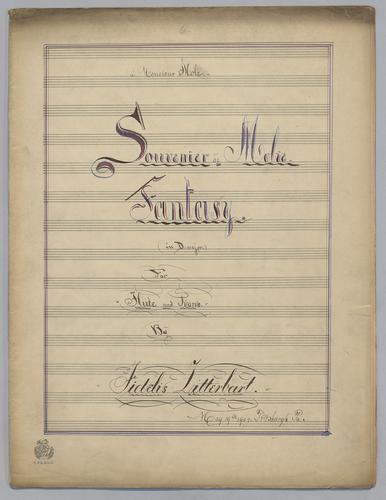 à Monsieur Molé.
Souvenier de Molié.
Fantasy.
(in D major)
For
Flute and Piano.
By
Fidelis Zitterbart.
May 19th 1907. Pittsburgh Pa.